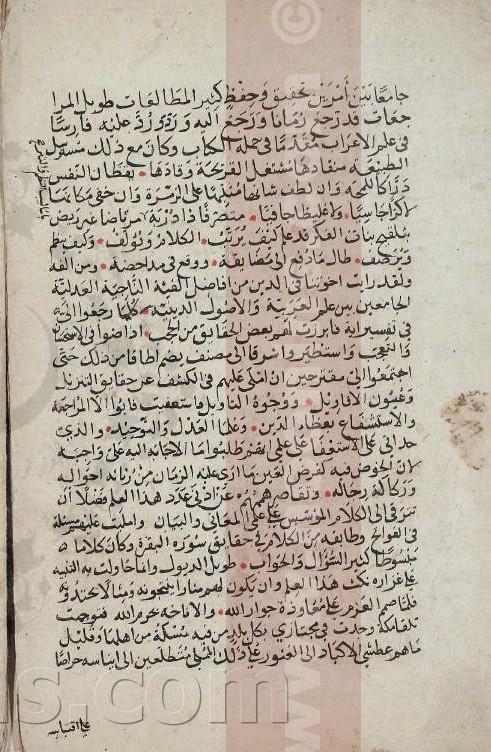 جامعا بين أمرين تحقيق وحفظ كثير المطالعات طويل المرا
جعات قد رجع زمانا ورجع اليه ورد ورد عليه فارسا
في علم الاعراب مقدما في حملة الكتاب وكان مع ذلك مسترسل
الطبيعة منقادها مشتعل القريحة وقادها يقظان النفس
دراكا للمحة وان لطف شانها منتبها على الرمزة وان خفي مكانها
لا كزا جاسيا ولا غليظا جافيا متصرفا ذا دربة مرتاضا غير ريض
بتلقيح بنات الفكر قد علم كيف يرتب الكلام ويؤلف وكيف ينظم
ويرصف طال ما دفع الى مضايقه ووقع في مداحضه ومزالقه
ولقد رايت اخوتنا في الدين من افاضل الفئة الناجية العدلية
الجامعين بين علم العربية والاصول الدينية كلما رجعوا الي
في تفسير اية فابرزت لهم بعض الحقايق من الحجب افاضوا في الاستحسان
والتعجب واستطيروا شوقا الى مصنف يضم اطرافا من ذلك حتى
اجتمعوا الي مقترحين ان املي عليهم في الكشف عن حقايق التنزيل
وعيون الاقاويل في وجوه التاويل فاستعفيت فابوا الا المراجعة
والاستشفاع بعظماء الدين وعلماء العدل والتوحيد والذي
حداني على الاستعفاء على علمي انهم طلبوا ما الاجابة اليه علي واجبة
لان الخوض فيه كفرض العين ما ارى عليه الزمان من رثاثة احواله
وركاكة رجاله وتقاصر هممهم عن ادنى عدد هذا العلم فضلا ان
تترقى الى الكلام المؤسس على علمي المعاني والبيان وامليت عليهم مسئلة
في الفواتح وطايفة من الكلام في حقايق سورة البقرة وكان كلاما
مبسوطا كثير السؤال والجواب طويل الذيول وانما حاولت به التنبيه
على غزارة نكت هذا العلم وان يكون لهم منارا ينتحونه ومثالا يحتذونه
فلما صمم العزم على معاودة جوار الله والاناخة بحرم الله فتوجهت
تلقا مكة وجدت في مجتازي بكل بلد من فيه مسكة من اهلها وقليل
ما هم عطشى الاكباد الى العثور على ذلك المملى متطلعين الى ايناسه حراصا
على اقتباسه